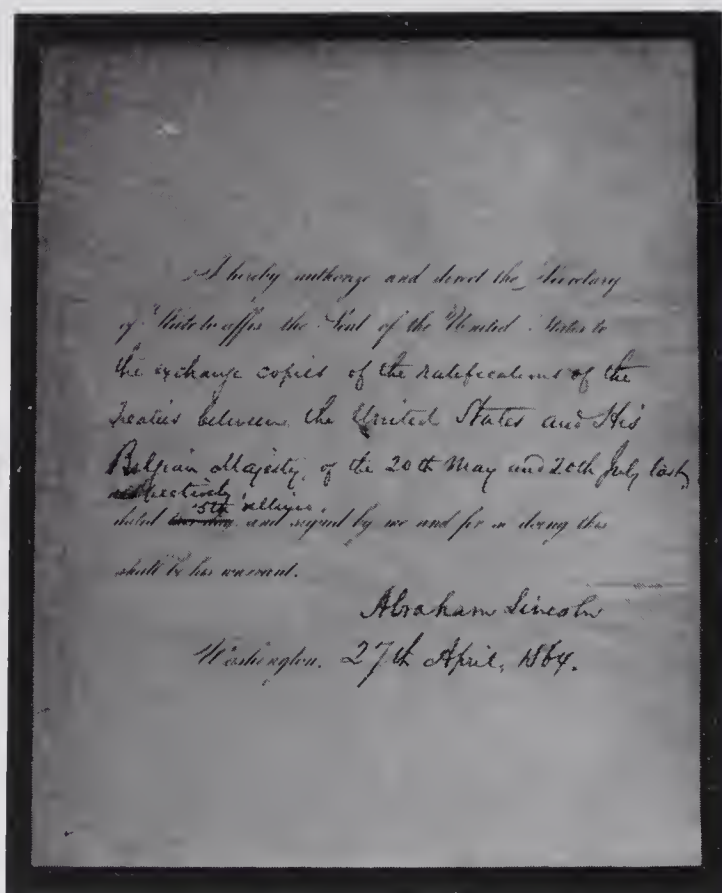 I hereby authorize and direct the Secretary
of State to affix the Seal of the United States to
the exchange copies of the ratifications of the
Treaties between the United States and His
Belgian Majesty, of the 20th May and 20th July last,
respectively
5th
dated this day, and signed by me and for so doing this
shall be his warrant.
Abraham Lincoln
Washington, 27th April, 1864.